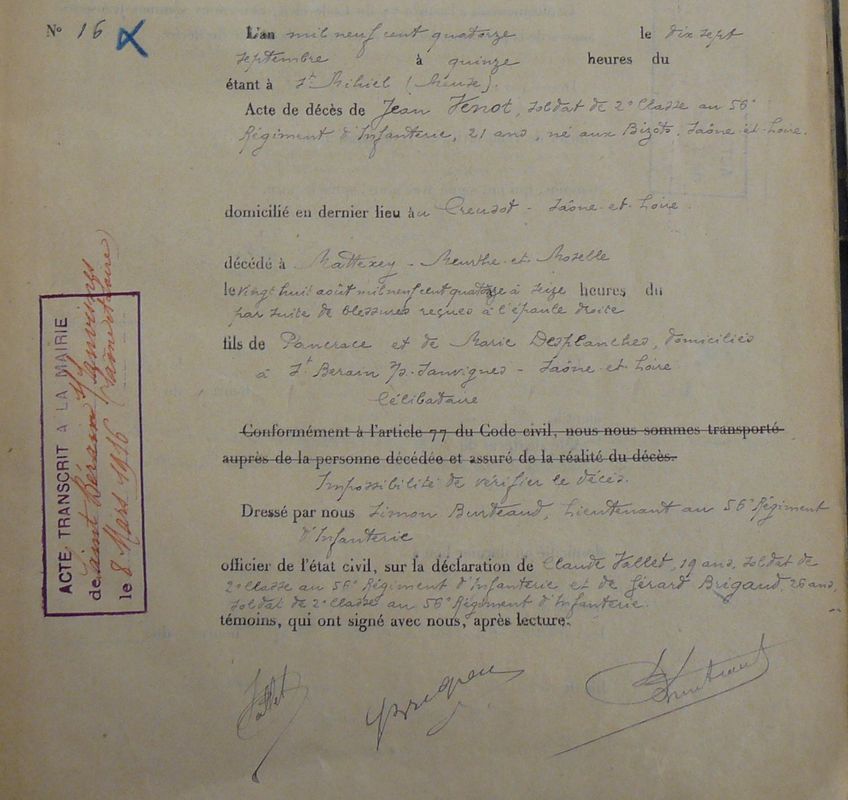 N° 16
L'an mil neuf cent quatorze le dix sept
septembre à quinze heures du
étant à St Mihiel (Meuse).
Acte de décès de Jean Venot, soldat de 2e Classe au 56e
Régiment d'Infanterie, 21 ans, né aux Bizots, Saône-et-Loire.
domicilié en dernier lieu au Creusot - Saône-et-Loire.
décédé à Mattexey - Meurthe-et-Moselle
le vingt huit août mil neuf cent quatorze à seize heures du
par suite de blessures reçues à l'épaule droite
fils de Pancrace et de Marie Desplanches, domiciliés
à St Berain s/s. Sanvignes - Saône-et-Loire
Célibataire
Conformément à l'article 77 du Code civil, nous nous sommes transporté
auprès de la personne décédée et assuré de la réalité du décès.
Impossibilité de vérifier le décès.
Dressé par nous Simon Burteaud, Lieutenant au 56e Régiment
d'Infanterie
officier de l'état civil, sur la déclaration de Claude Vallet, 19 ans, soldat de
2e Classe au 56e Régiment d'Infanterie et de Gérard Brigaud, 26 ans,
soldat de 2e Classe au 56e Régiment d'Infanterie.
témoins, qui ont signé avec nous, après lecture.
Vallet
ACTE TRANSCRIT A LA MAIRIE
de Saint Bérain s/s Sanvignes
(Saône et Loire)
le 8 Mars 1916